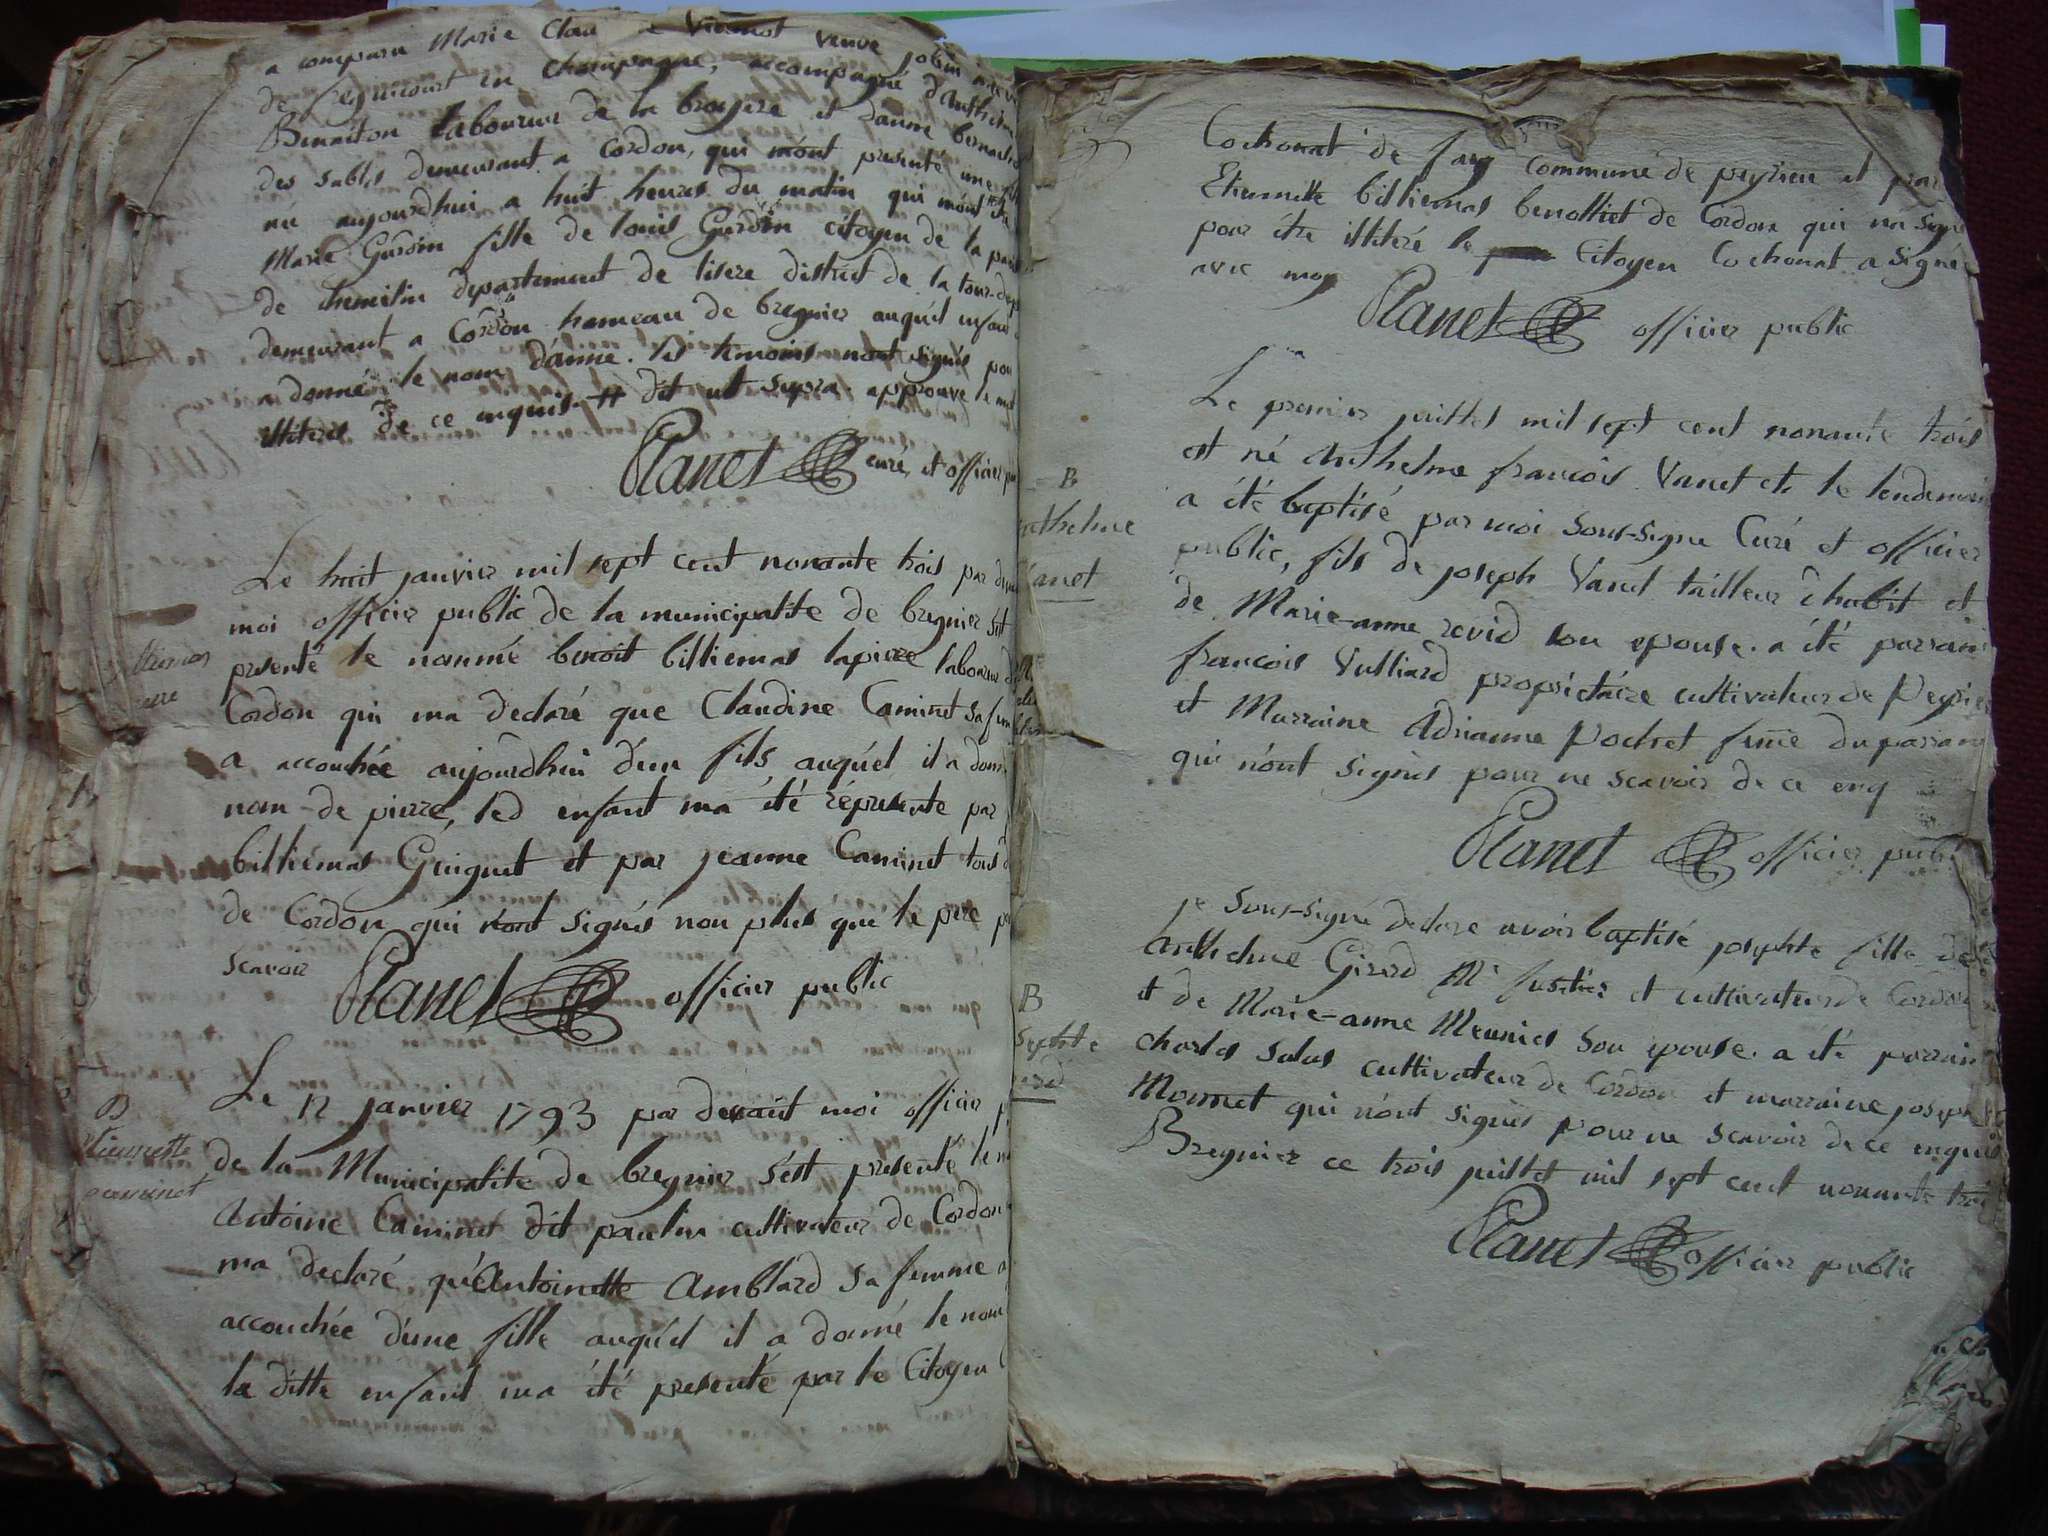 a comparu Marie veuve
de en champagne, accompagné d'Anthelme
Benneton laboureur de la bruyere et
des sables demeurant a Cordon, qui m'ont presenté une
né aujourdhui a huit heures du matin qui m'ont dit
Marie Gurdin fille de louis Gurdin citoyen de la
de Chemilin departement de lisere district de la tour-du
demeurant a Cordon hameau de bregnier auquel enfant
a donné le nom d'anne. les temoins n'ont signés pou
illiteres de ce enquis # dit ut supra approuve le
Planet curé, et officier
Le huit janvier mil sept cent nonante trois par d
moi officier public de la municipalite de bregnier s'est
presenté le nommé benoit billiemas lapierre laboureur
Cordon qui ma declaré que Claudine Caminet sa fem
a accouchée aujourdhui d'un fils auquel il a donn
nom de pierre, led enfant ma été représenté par
billiemas Guignet et par jeanne Caminet tous
de Cordon qui n'ont signés non plus que le pere
scavoir Planet officier public
B
Etiennette
Caminet
Le 12 janvier 1793 par devant moi officier
de la Municipalite de bregnier s'est presenté le
Antoine Caminet dit paulin cultivateur de Cordon
ma declaré qu'Antoinette Amblard sa femme a
accouchée d'une fille auquel il a donné le nom
la ditte enfant ma été presenté par le Citoyen
Cochonat de commune de peyrieu et par
Etiennette billiemas benottiet de Cordon qui na signé
pour étre illiteré le Citoyen Cochonat a signé
avec moy
Planet officier public
B
nthelme
Vanet
Le premier juillet mil sept cent nonante trois
est né Anthelme francois Vanet et le lendemain
a été baptisé par moi sous-signé Curé et officier
public, fils de joseph Vanet tailleur d'habit et
de Marie-anne revid son epouse. a été parrain
francois Vulliard proprietaire cultivateur de Peyrieu
et Marraine Adrianne Pochet fme du parrain
qui n'ont signés pour ne scavoir de ce enq
Planet officier publ
B
Sephte
rard
je sous-signé declare avoir baptisé josephte fille de
Anthelme Girard Me fustier et cultivateur de Cordon
et de Marie-anne Meunier son epouse. a été parrain
charles salus cultivateur de Cordon et marraine joseph
Monnet qui n'ont signés pour ne scavoir de ce enquis
Bregnier ce trois juillet mil sept cent nonante trois
Planet officier public